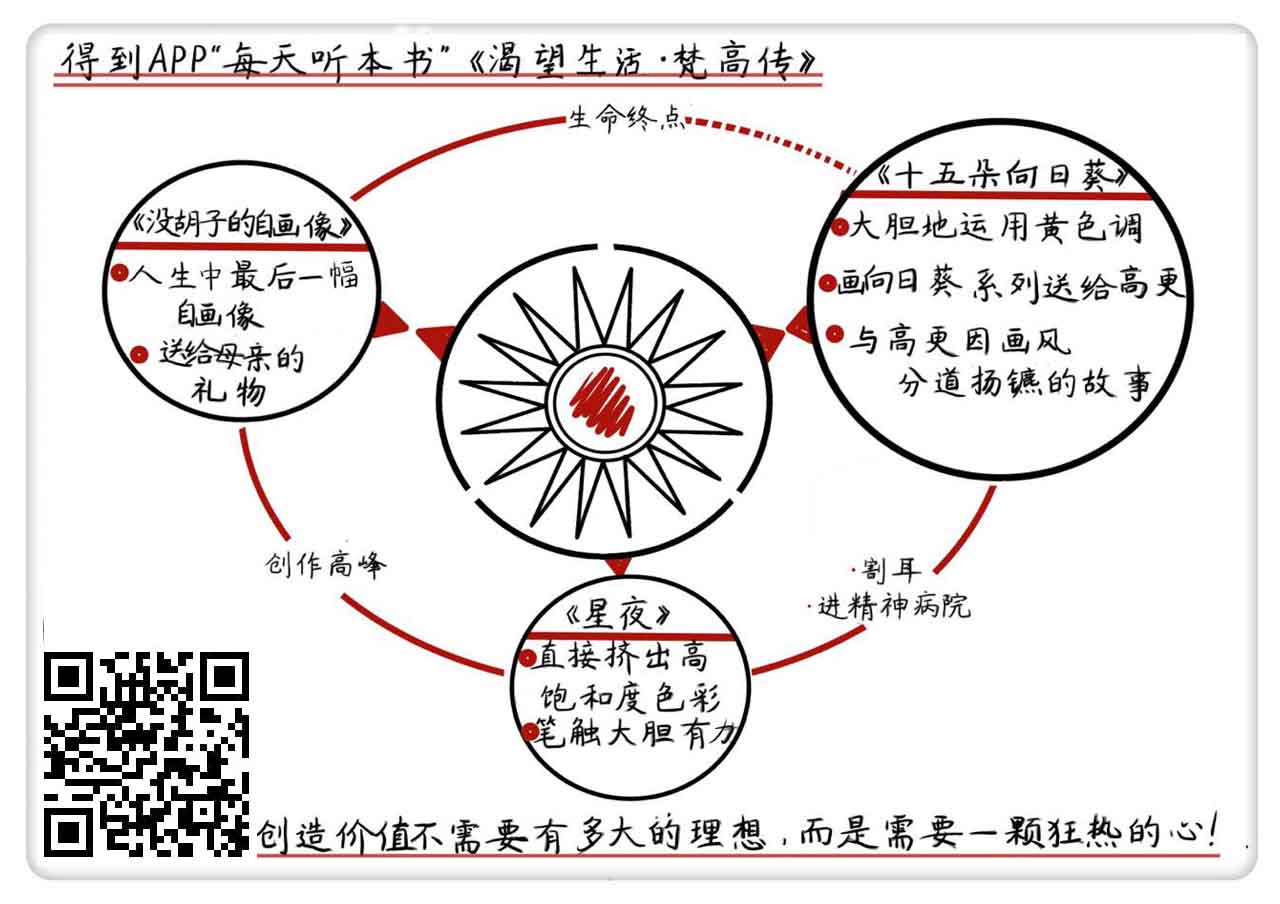 得到APP“每天听本书”《渴望生活·梵高传》
生命终点
《没胡子的自画像》
人生中最后一幅
自画像
送给母亲的
礼物
《十五朵向日葵》
大胆地运用黄色调
画向日葵系列送给高更
与高更因画风
分道扬镳的故事
创作高峰
·割耳
·进精神病院
《星夜》
直接挤出高
饱和度色彩
笔触大胆有力
创造价值不需要有多大的理想,而是需要一颗狂热的心!